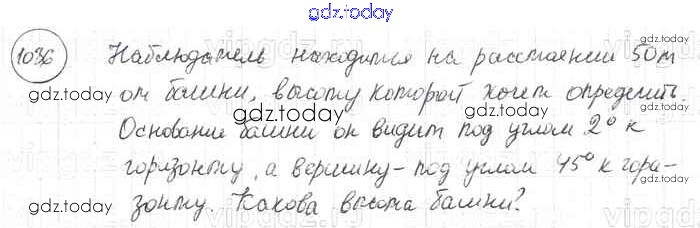 gdz.today
1036 Наблюдатель находится на расстоянии 50м
от башни, высоту которой хочет определить.
gdz.today gdz.today gdz.today
Основание башни он видит под углом 2° к
горизонту, а вершину - под углом 45° к гори-
gdz.today gdz.today gdz.today
зонту. Какова высота башни?